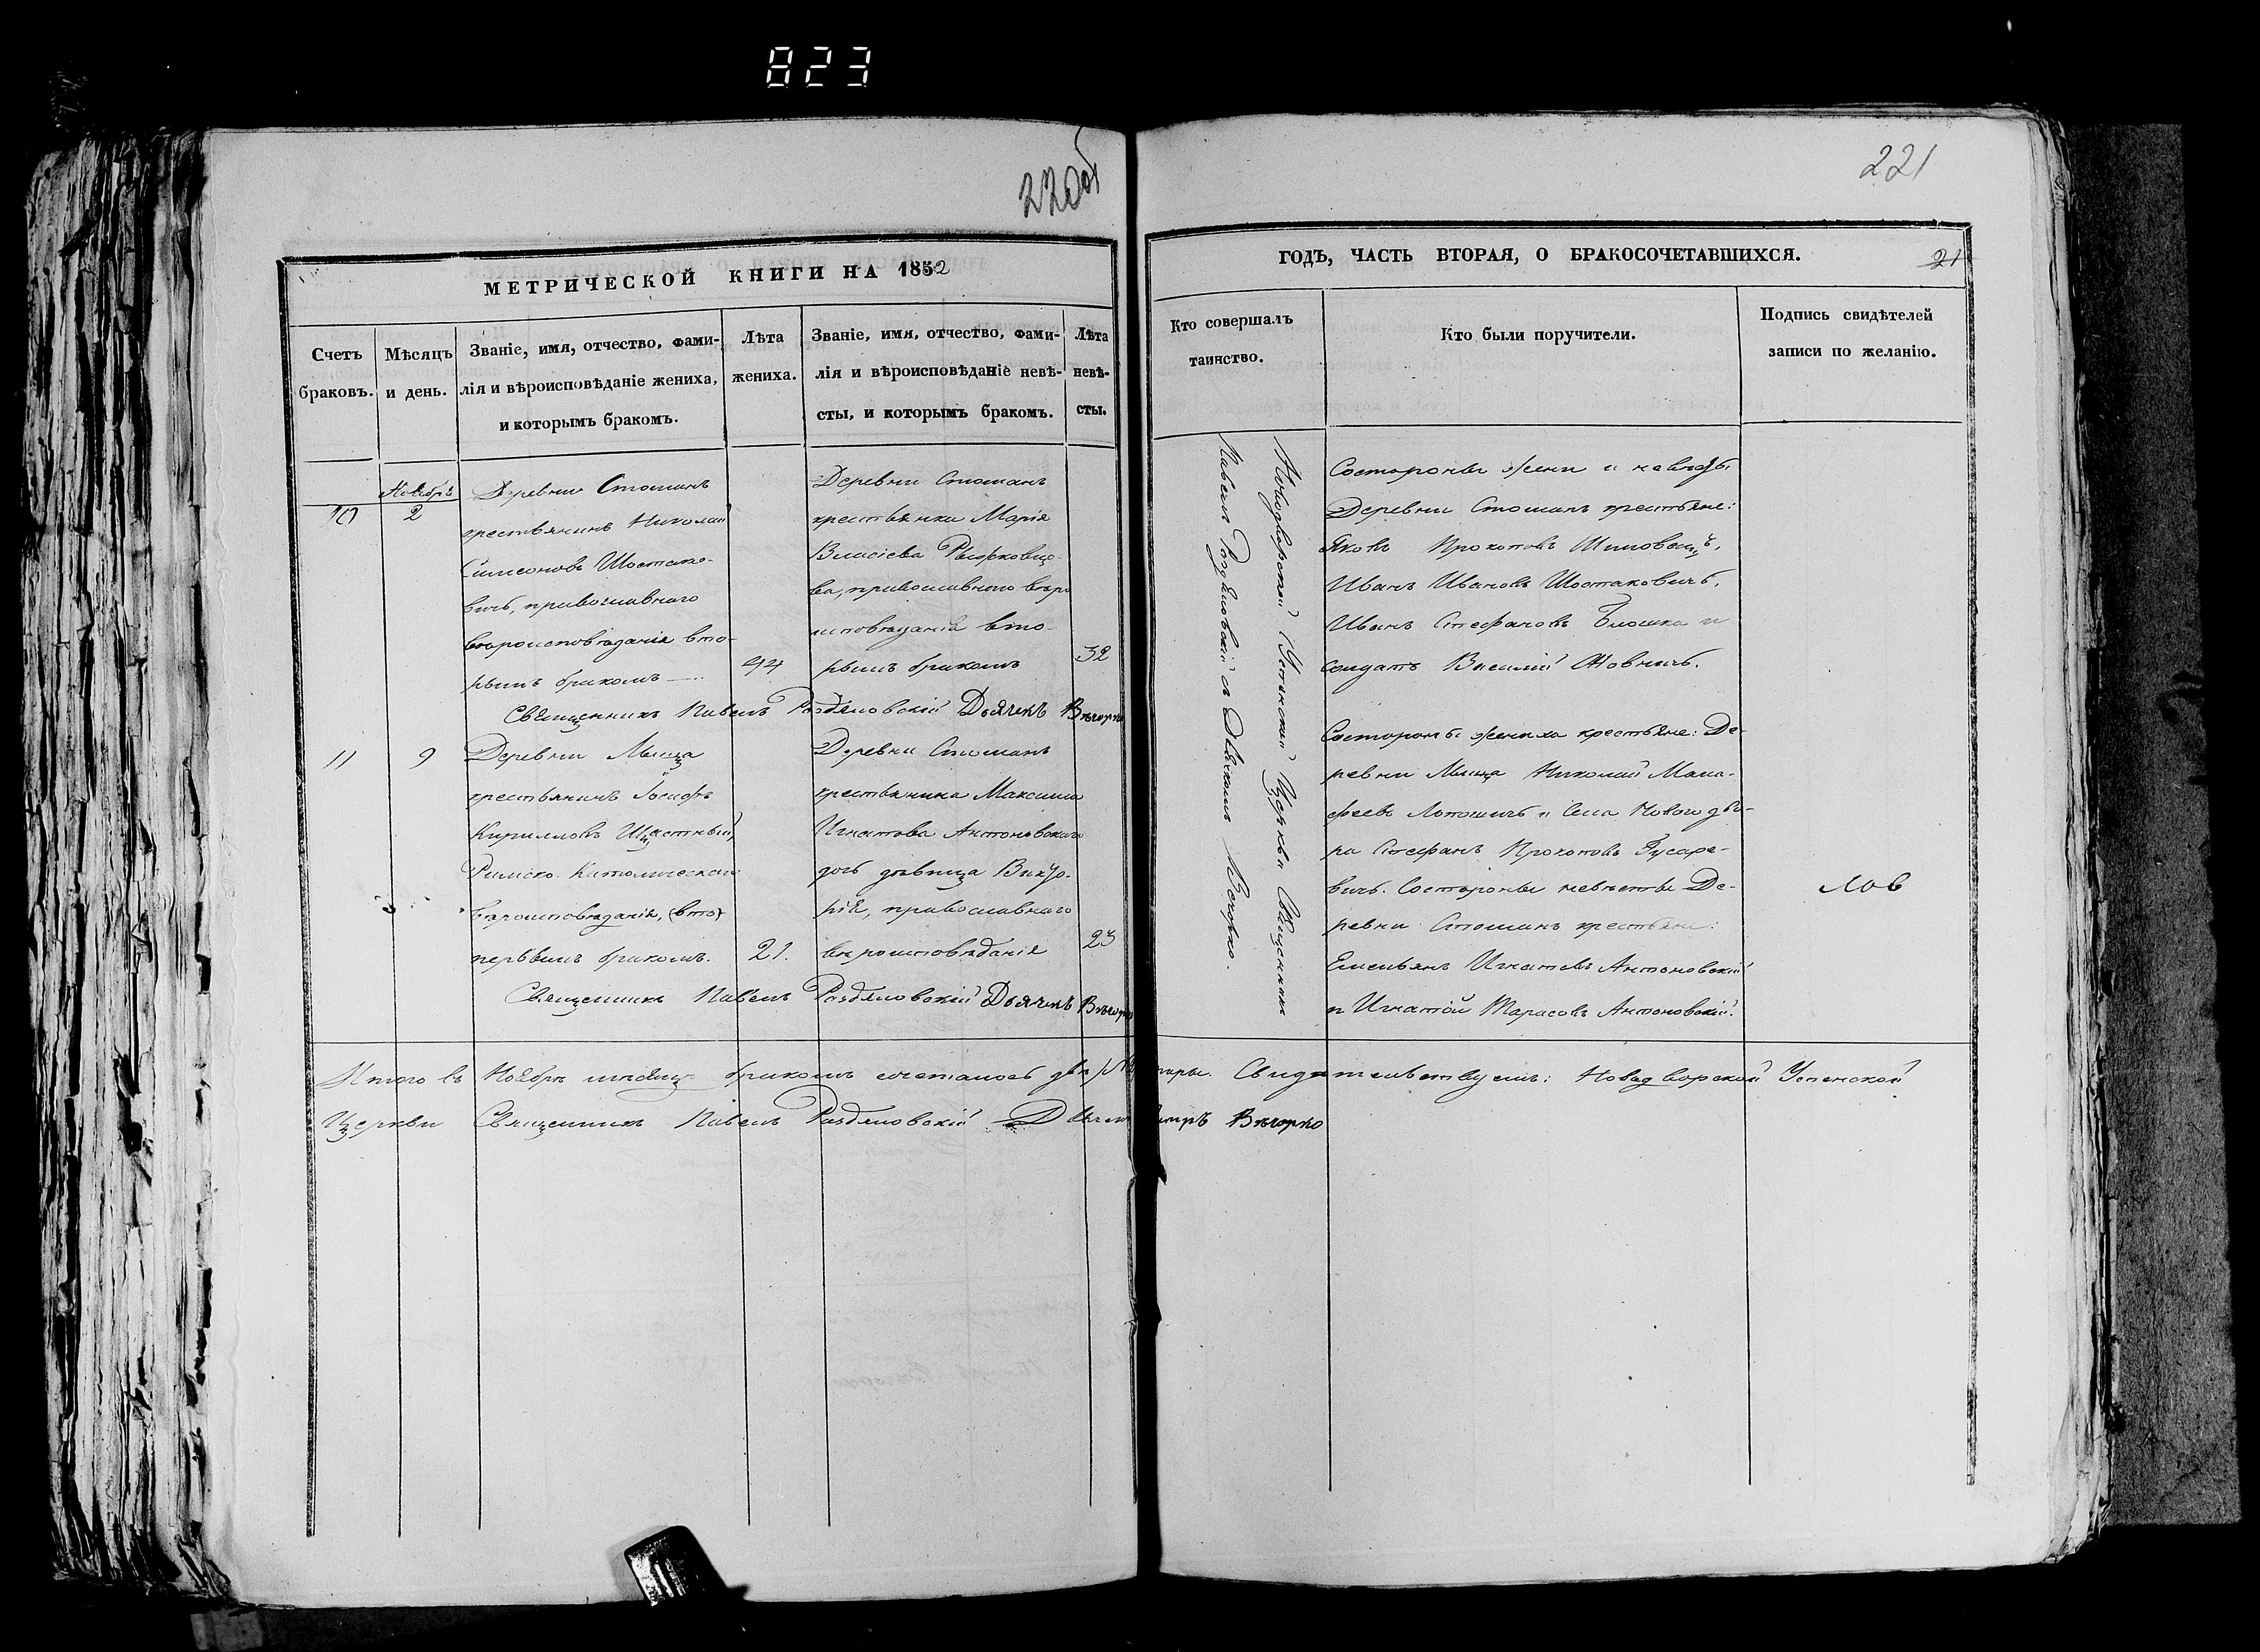 823
220об
МЕТРИЧЕСКОЙ КНИГИ НА 1852
Счетъ браковъ.
Мѣсяцъ и день.
Званіе, имя, отчество, фами-
лія и вѣроисповѣданіе жениха,
и которымъ бракомъ.
Лѣта
жениха.
Званіе, имя, отчество, фами-
лія и вѣроисповѣданіе невѣ-
сты, и которымъ бракомъ.
Лѣта
невѣ-
сты.
Ноябрь
10
2
Деревни Стошанъ
крестьянинъ Николай
Симеоновъ Шостако-
вичъ, православнаго
вѣроисповѣданія вто-
рымъ бракомъ
44
Деревни Стошанъ
крестьянка Марія
Власіева
ва, православнаго вѣро
исповѣданія вто-
рымъ бракомъ
32
Священникъ Павелъ Раздяловскій Дьячекъ Вѣчорко
11
9
Деревни Мыща
крестьянинъ Іосифъ
Кирилловъ Щастный,
Римско-Католическаго
вѣроисповѣданія, (вто)
первымъ бракомъ.
21.
Деревни Стошанъ
крестьянина Максима
Игнатова Антоновскаго
дочь дѣвица Викто-
рія, православнаго
вѣроисповѣданія
23
Священникъ Павелъ Раздяловскій Дьячекъ Вѣчорко
Итого въ Ноябрѣ мѣсяцѣ бракомъ сочеталось двѣ пары. Свидѣтельствуемъ: Новодворской Успенской
Церкви Священникъ Павелъ Раздяловскій Дьячекъ Вѣчорко
221
ГОДЪ, ЧАСТЬ ВТОРАЯ, О БРАКОСОЧЕТАВШИХСЯ.
21
Кто совершалъ
таинство.
Кто были поручители.
Подпись свидѣтелей
записи по желанію.
Новодворской Успенской Церкви Священникъ
Павелъ Раздяловскій съ Дьячкомъ Вечорко.
Состороны жени и невѣсты
Деревни Стошанъ крестьяне:
Яковъ Прокоповъ
Иванъ Ивановъ Шостаковичъ,
Иванъ Стефановъ Блошка и
солдатъ Василій Жовничъ.
Состороны жениха крестьяне: Де-
ревни Мыща Николай Мака-
феевъ Лотошичъ и Села Новогодво-
ра Стефанъ Прокоповъ Гусаре-
вичъ. Состороны невѣсты Де-
ревни Стошанъ крестьяне:
Емельянъ Игнатовъ Антоновскій
и Игнатій Тарасовъ Антоновскій.
лов